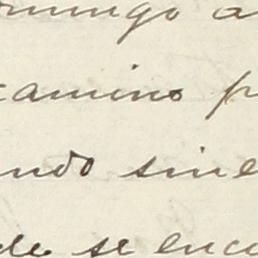 omingo a
camino p
ndo sine
de se encu